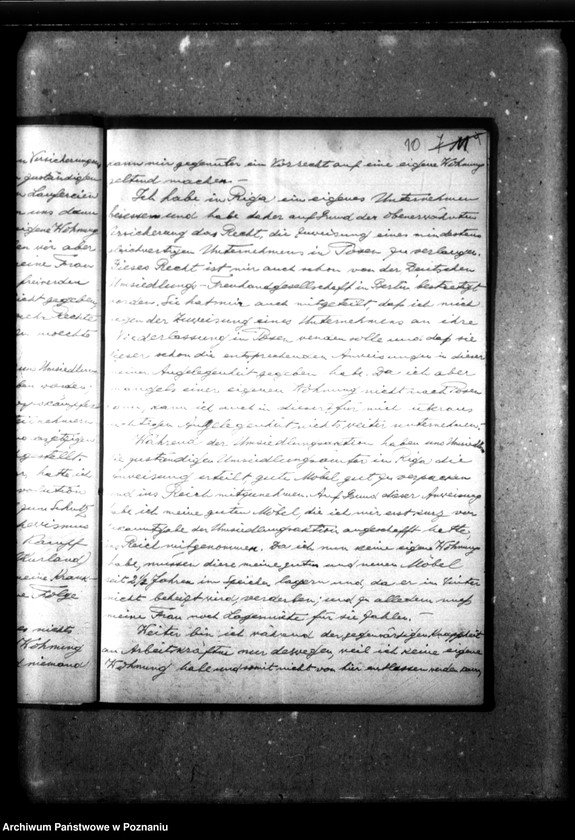 n Versicherungen
zuständigen
Laufereien
uns dann
eigene Wohnung
wir aber
meine Frau
nicht gegeben,
Rechte
möchte
Umsiedlung
worden
hatte ich
zum Schutz
Kampf
Kurland)
meine Krank-
Folge
es nichts
Wohnung
niemand
10
kann mir gegenüber ein Vorrecht auf eine eigene Wohnung
geltend machen. –
Ich habe in Riga ein eigenes Unternehmen
besessen und habe daher auf Grund der obenerwähnten
Versicherung das Recht, die Zuweisung eines mindestens
gleichwertigen Unternehmens in Posen zu verlangen.
Dieses Recht ist mir auch schon von der Deutschen
Umsiedlungs-Treuhandgesellschaft in Berlin bestätigt
worden. Sie hat mir auch mitgeteilt, daß ich mich
wegen der Zuweisung eines Unternehmens an ihre
Niederlassung in Posen wenden solle und daß sie
dieser schon die entsprechenden Anweisungen in dieser
meiner Angelegenheit gegeben hat. Da ich aber
mangels einer eigenen Wohnung nicht nach Posen
kann, kann ich auch in dieser für mich überaus
wichtigen Angelegenheit nichts weiter unternehmen.
Während der Umsiedlungsaktion haben uns Umsiedlern
die zuständigen Umsiedlungsämter in Riga die
Anweisung erteilt, gute Möbel gut zu verpacken
und ins Reich mitzunehmen. Auf Grund dieser Anweisung
habe ich meine guten Möbel, die ich mir erst kurz vor
Bekanntgabe der Umsiedlungsaktion angeschafft hatte,
ins Reich mitgenommen. Da ich nun keine eigene Wohnung
habe, müssen diese meine guten und neuen Möbel
seit 2½ Jahren im Speicher lagern und da er im Winter
nicht beheizt wird, verderben; und zu alledem muß
meine Frau noch Lagermiete für sie zahlen. –
Weiter bin ich während der gegenwärtigen Knappheit
an Arbeitskräften nur deswegen, weil ich keine eigene
Wohnung habe und somit nicht von hier entlassen werden kann,
Archiwum Państwowe w Poznaniu